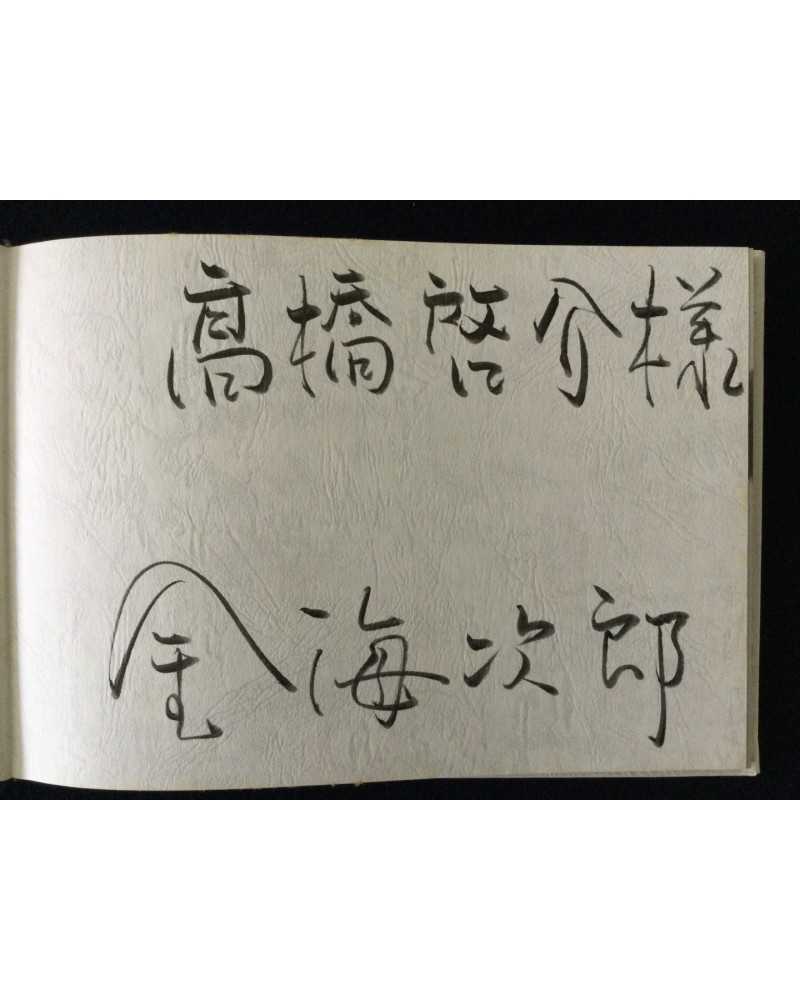 高橋啓介様
金海次郎